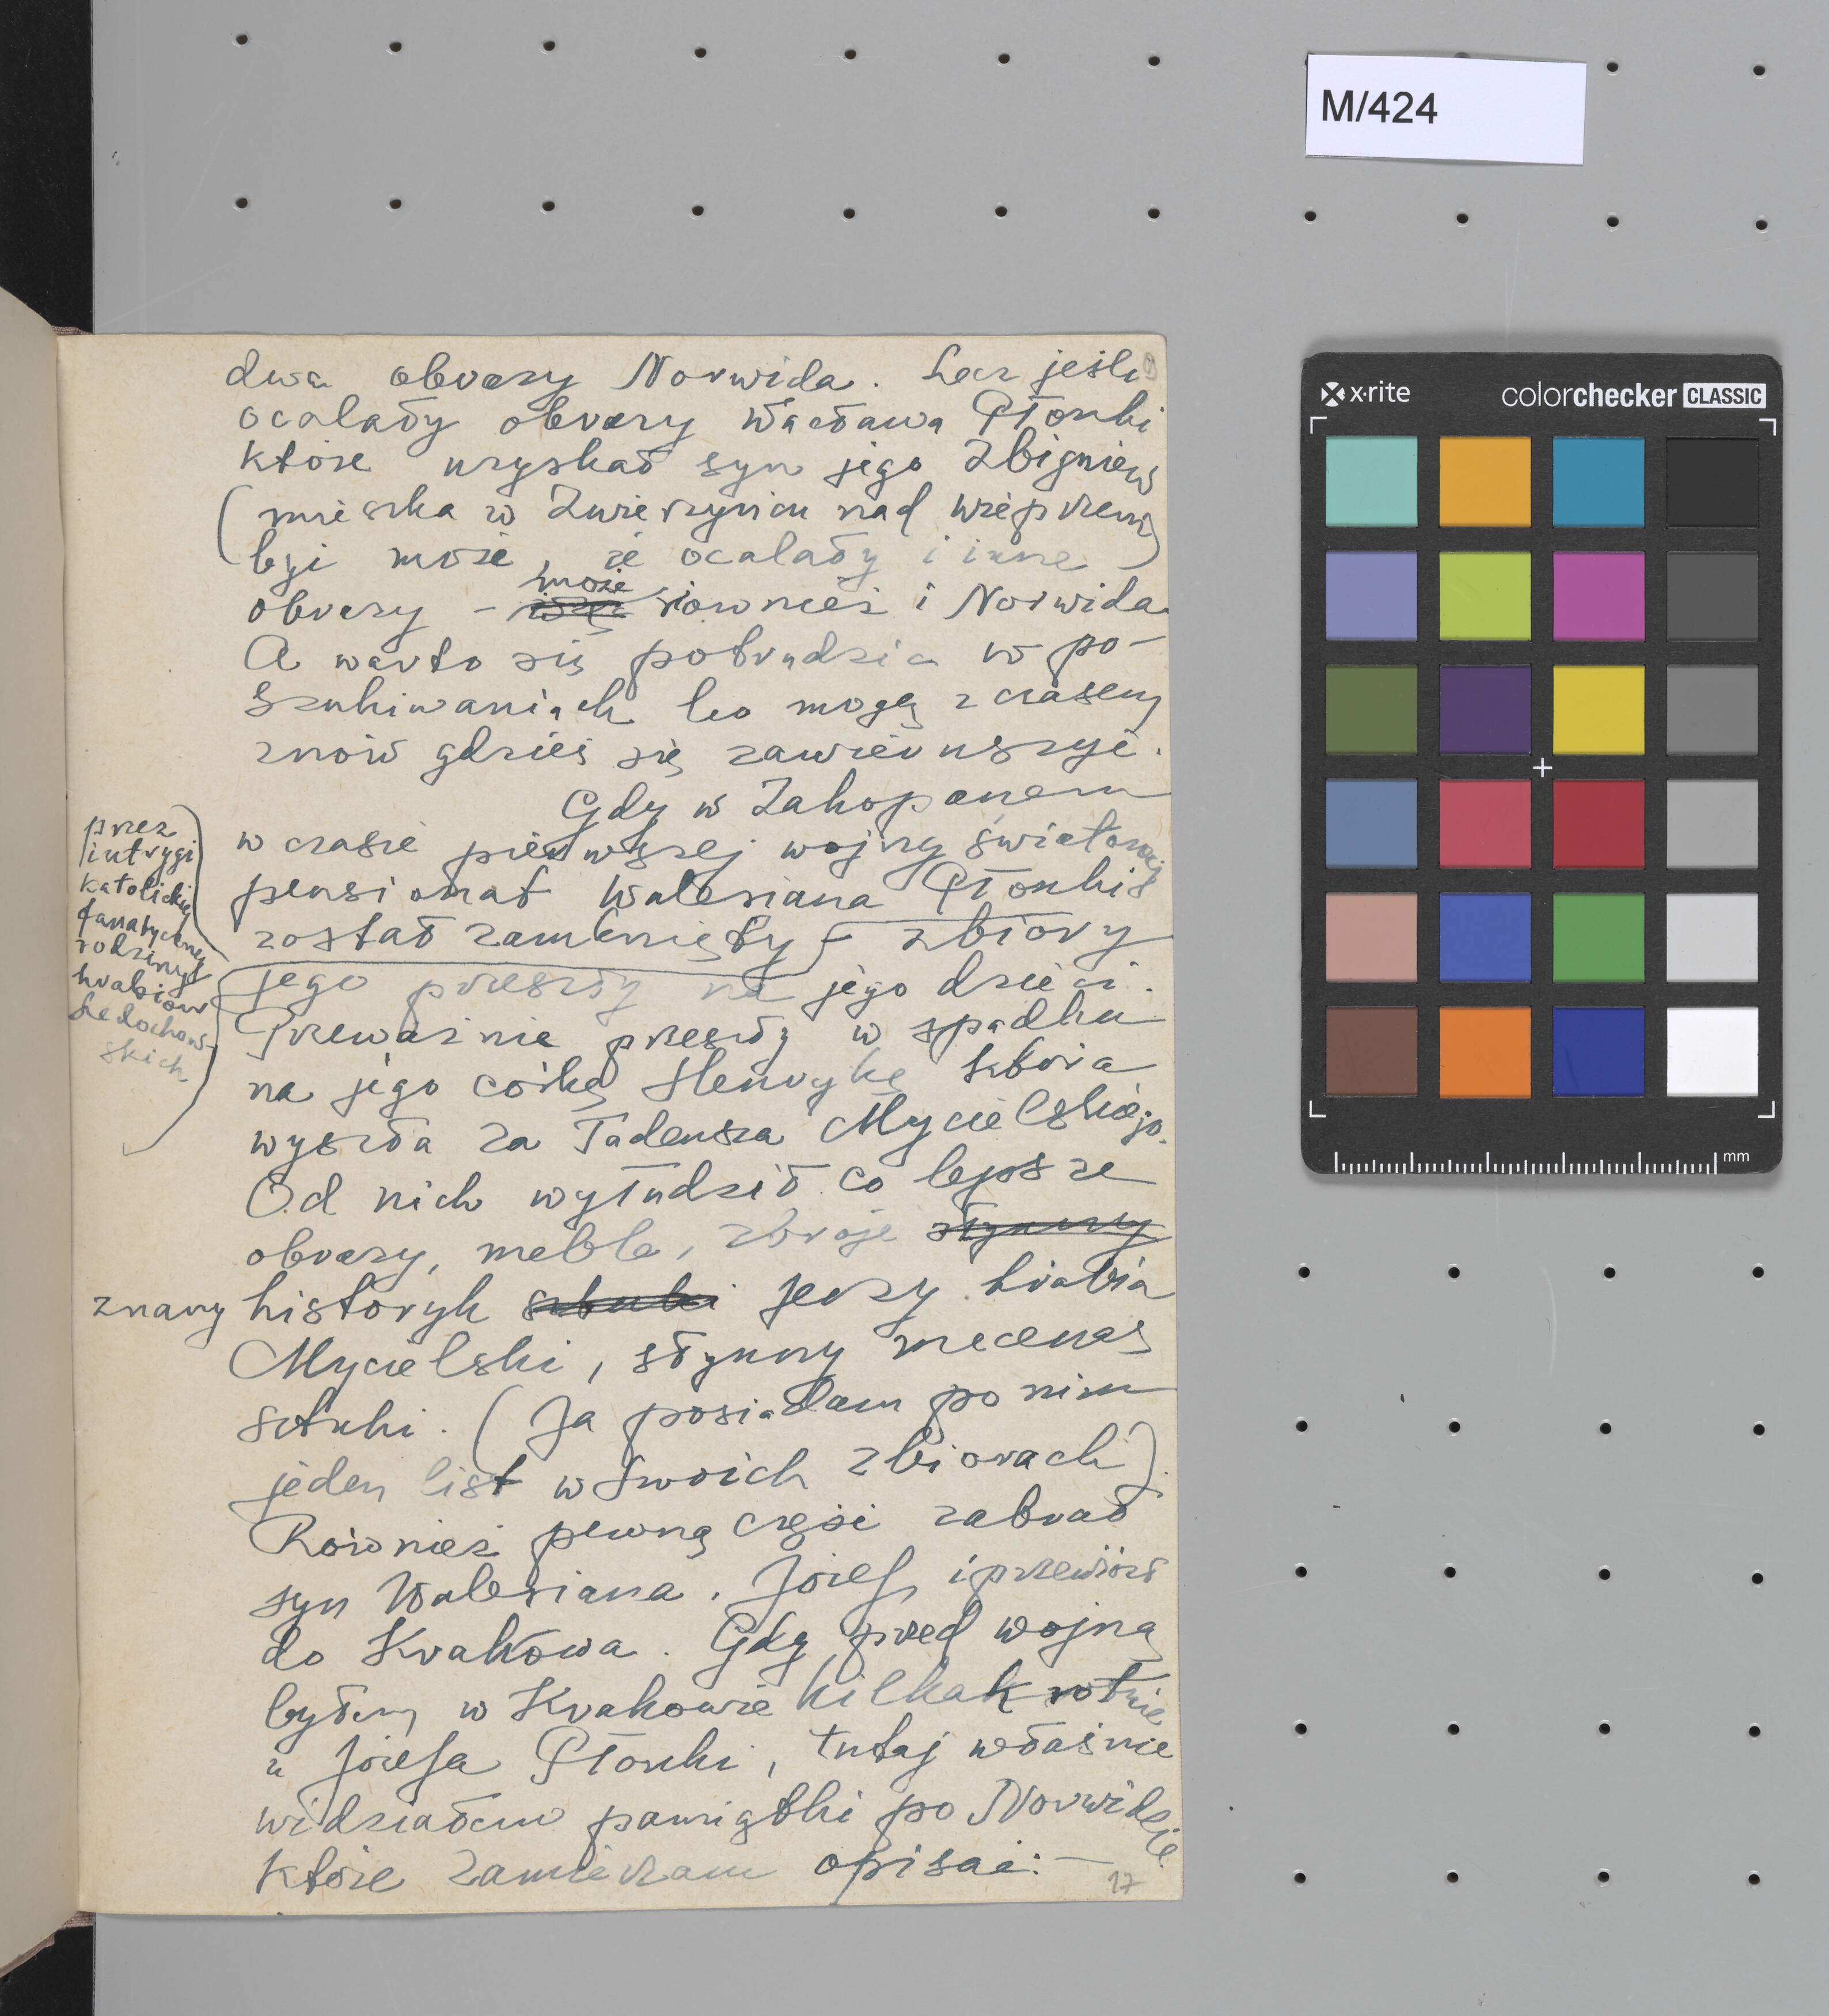 M/424
x·rite
colorchecker CLASSIC
mm
dwa obrazy Norwida. Lecz jeśli
ocalały obrazy Wacława Płonki
które uzyskał syn jego Zbigniew
(mieszka w Zwierzyńcu nad Wieprzem)
być może, że ocalały i inne
obrazy - może również i Norwida
A warto się potrudzić w po-
szukiwaniach bo mogą z czasem
znów gdzieś się zawieruszyć.
Gdy w Zakopanem
w czasie pierwszej wojny światowej
pensionat Waleriana Płonki
został zamknięty
przez
intrygi
katolickiej
fanatycznej
rodziny
hrabiów
Ledochow-
skich
zbiory
jego przeszły na jego dzieci.
Przeważnie przeszły w spadku
na jego córkę Henrykę która
wyszła za Tadeusza Mycielskiego.
Od nich wyłudził co lepsze
obrazy, meble, zbroje słynny
znany historyk sztuki Jerzy hrabia
Mycielski, słynny mecenas
sztuki. (Ja posiadam po nim
jeden list w swoich zbiorach).
Również pewną część zabrał
syn Waleriana, Józef, i przewiózł
do Krakowa. Gdy przed wojną
byłem w Krakowie kilkakrotnie
u Józefa Płonki, tutaj właśnie
widziałem pamiątki po Norwidzie.
które zamierzam opisać: —
17